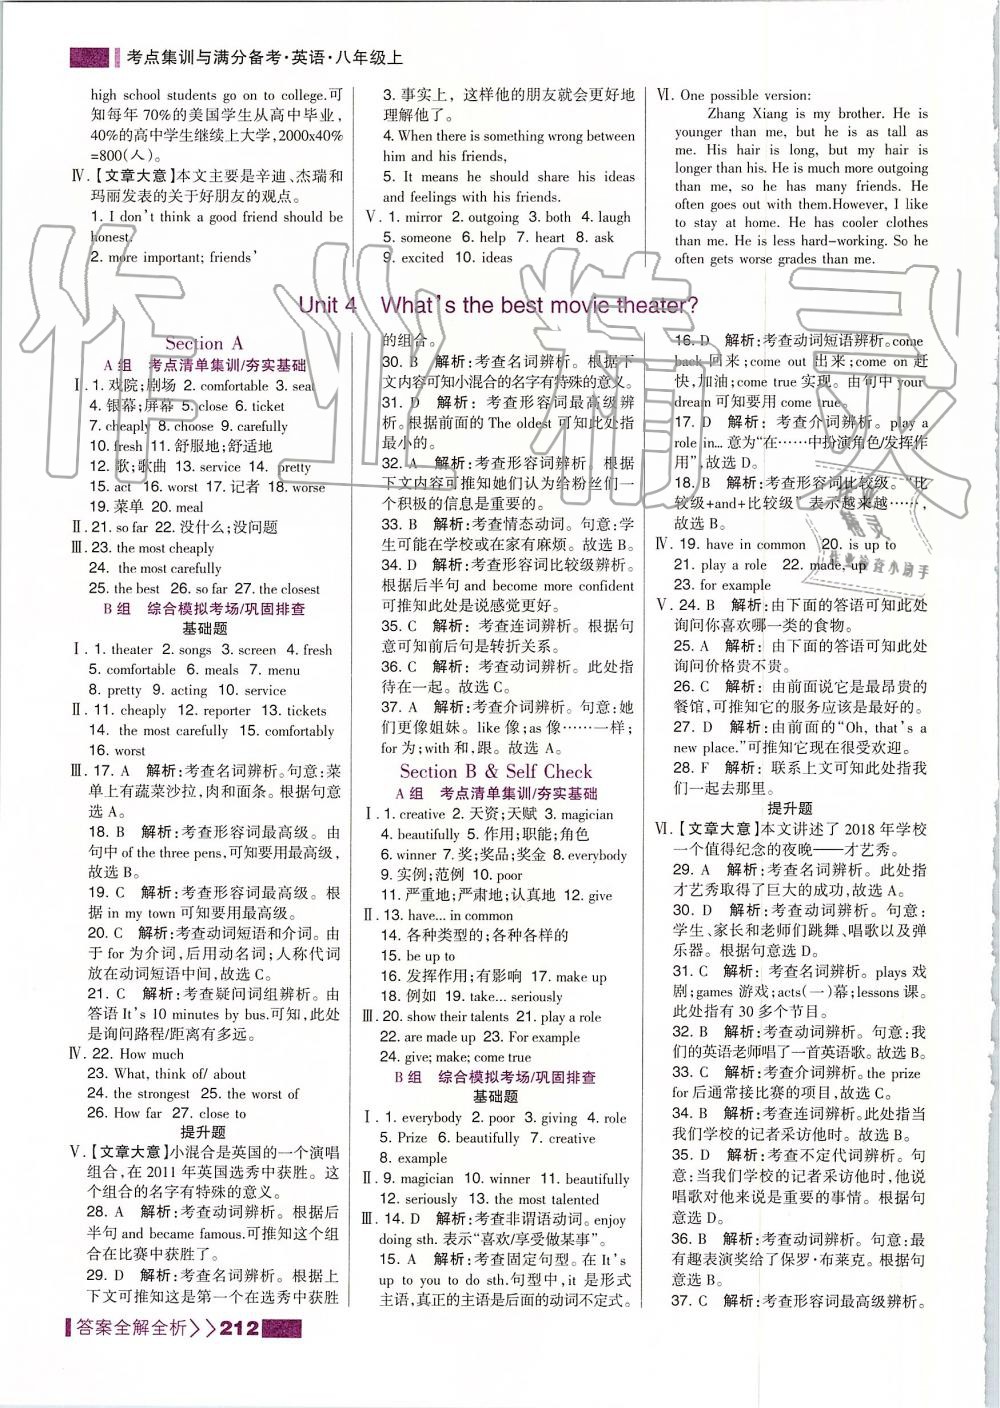 考点集训与满分备考·英语·八年级上
high school students go on to college.可
知每年 70%的美国学生从高中毕业,
40%的高中学生继续上大学,2000x40%
=800(人)。
Ⅳ.【文章大意】本文主要是辛迪、杰瑞和
玛丽发表的关于好朋友的观点。
1. I don't think a good friend should be
honest.
2. more important; friends'
3. 事实上，这样他的朋友就会更好地
理解他了。
4. When there is something wrong between
him and his friends,
5. It means he should share his ideas
and feelings with his friends.
Ⅴ. 1. mirror 2. outgoing 3. both 4. laugh
5. someone 6. help 7. heart 8. ask
9. excited 10. ideas
Ⅵ. One possible version:
Zhang Xiang is my brother. He is
younger than me, but he is as tall as
me. His hair is long, but my hair is
longer than his. He is much more outgoing
than me, so he has many friends. He
often goes out with them.However, I like
to stay at home. He has cooler clothes
than me. He is less hard-working. So he
often gets worse grades than me.
Unit 4 What's the best movie theater?
Section A
A 组 考点清单集训/夯实基础
Ⅰ. 1. 戏院;剧场 2. comfortable 3. seat
4. 银幕;屏幕 5. close 6. ticket
7. cheaply 8. choose 9. carefully
10. fresh 11. 舒服地;舒适地
12. 歌;歌曲 13. service 14. pretty
15. act 16. worst 17. 记者 18. worse
19. 菜单 20. meal
Ⅱ. 21. so far 22. 没什么;没问题
Ⅲ. 23. the most cheaply
24. the most carefully
25. the best 26. so far 27. the closest
B 组 综合模拟考场/巩固排查
基础题
Ⅰ. 1. theater 2. songs 3. screen 4. fresh
5. comfortable 6. meals 7. menu
8. pretty 9. acting 10. service
Ⅱ. 11. cheaply 12. reporter 13. tickets
14. the most carefully 15. comfortably
16. worst
Ⅲ. 17. A 解析:考查名词辨析。句意:菜
单上有蔬菜沙拉,肉和面条。根据句意
选 A。
18. B 解析:考查形容词最高级。由
句中 of the three pens,可知要用最高级,
故选 B。
19. C 解析:考查形容词最高级。根
据 in my town 可知要用最高级。
20. C 解析:考查动词短语和介词。由
于 for 为介词,后用动名词;人称代词
放在动词短语中间,故选 C。
21. C 解析:考查疑问词组辨析。由
答语 It's 10 minutes by bus.可知,此处
是询问路程/距离有多远。
Ⅳ. 22. How much
23. What, think of/ about
24. the strongest 25. the worst of
26. How far 27. close to
提升题
Ⅴ.【文章大意】小混合是英国的一个演唱
组合,在 2011 年英国选秀中获胜。这
个组合的名字有特殊的意义。
28. A 解析:考查动词辨析。根据后
半句 and became famous.可推知这个组
合在比赛中获胜了。
29. D 解析:考查名词辨析。根据上
下文可推知这是第一个在选秀中获胜
的组合。
30. B 解析:考查名词辨析。根据下
文内容可知小混合的名字有特殊的意义。
31. D 解析:考查形容词最高级辨
析。根据前面的 The oldest 可知此处指
最小的。
32. A 解析:考查形容词辨析。根据
下文内容可推知她们认为给粉丝们一
个积极的信息是重要的。
33. B 解析:考查情态动词。句意:学
生可能在学校或在家有麻烦。故选 B。
34. D 解析:考查形容词比较级辨析。
根据后半句 and become more confident
可推知此处是说感觉更好。
35. C 解析:考查连词辨析。根据句
意可知前后句是转折关系。
36. C 解析:考查动词辨析。此处指
待在一起。故选 C。
37. A 解析:考查介词辨析。句意:她
们更像姐妹。like 像;as 像……一样;
for 为;with 和,跟。故选 A。
Section B & Self Check
A 组 考点清单集训/夯实基础
Ⅰ. 1. creative 2. 天资;天赋 3. magician
4. beautifully 5. 作用;职能;角色
6. winner 7. 奖;奖品;奖金 8. everybody
9. 实例;范例 10. poor
11. 严重地;严肃地;认真地 12. give
Ⅱ. 13. have... in common
14. 各种类型的;各种各样的
15. be up to
16. 发挥作用;有影响 17. make up
18. 例如 19. take... seriously
Ⅲ. 20. show their talents 21. play a role
22. are made up 23. For example
24. give; make; come true
B 组 综合模拟考场/巩固排查
基础题
Ⅰ. 1. everybody 2. poor 3. giving 4. role
5. Prize 6. beautifully 7. creative
8. example
Ⅱ. 9. magician 10. winner 11. beautifully
12. seriously 13. the most talented
Ⅲ. 14. D 解析:考查非谓语动词。enjoy
doing sth. 表示“喜欢/享受做某事”。
15. A 解析:考查固定句型。在 It's
up to you to do sth.句型中,it 是形式
主语,真正的主语是后面的动词不定式。
16. D 解析:考查动词短语辨析。come
back 回来;come out 出来;come on 赶
快,加油;come true 实现。由句中 your
dream 可知要用 come true。
17. D 解析:考查介词辨析。play a
role in... 意为“在……中扮演角色/发挥作
用”,故选 D。
18. B 解析:考查形容词比较级。“比
较级+and+比较级”表示越来越……,
故选 B。
Ⅳ. 19. have in common 20. is up to
21. play a role 22. made, up
23. for example
Ⅴ. 24. B 解析:由下面的答语可知此处
询问你喜欢哪一类的食物。
25. A 解析:由下面的答语可知此处
询问价格贵不贵。
26. C 解析:由前面说它是最昂贵的
餐馆,可推知它的服务应该是最好的。
27. D 解析:由前面的“Oh, that's a
new place.”可推知它现在很受欢迎。
28. F 解析:联系上文可知此处指我
们一起去那里。
提升题
Ⅵ.【文章大意】本文讲述了 2018 年学校
一个值得纪念的夜晚——才艺秀。
29. A 解析:考查名词辨析。此处指
才艺秀取得了巨大的成功,故选 A。
30. D 解析:考查动词辨析。句意:
学生、家长和老师们跳舞、唱歌以及弹
乐器。根据句意选 D。
31. C 解析:考查名词辨析。plays 戏
剧;games 游戏;acts(一)幕;lessons 课。
此处指有 30 多个节目。
32. B 解析:考查动词辨析。句意:我
们的英语老师唱了一首英语歌。故选 B。
33. C 解析:考查介词辨析。the prize
for 后通常接比赛的项目,故选 C。
34. B 解析:考查连词辨析。此处指当
我们学校的记者采访他时。故选 B。
35. D 解析:考查不定代词辨析。句
意:当我们学校的记者采访他时,他说
唱歌对他来说是重要的事情。根据句
意选 D。
36. B 解析:考查动词辨析。句意:最
有趣表演奖给了保罗·布莱克。根据句
意选 B。
37. C 解析:考查形容词最高级辨析。
答案全解全析>>212
作业精灵
作业精灵
作业检查小助手